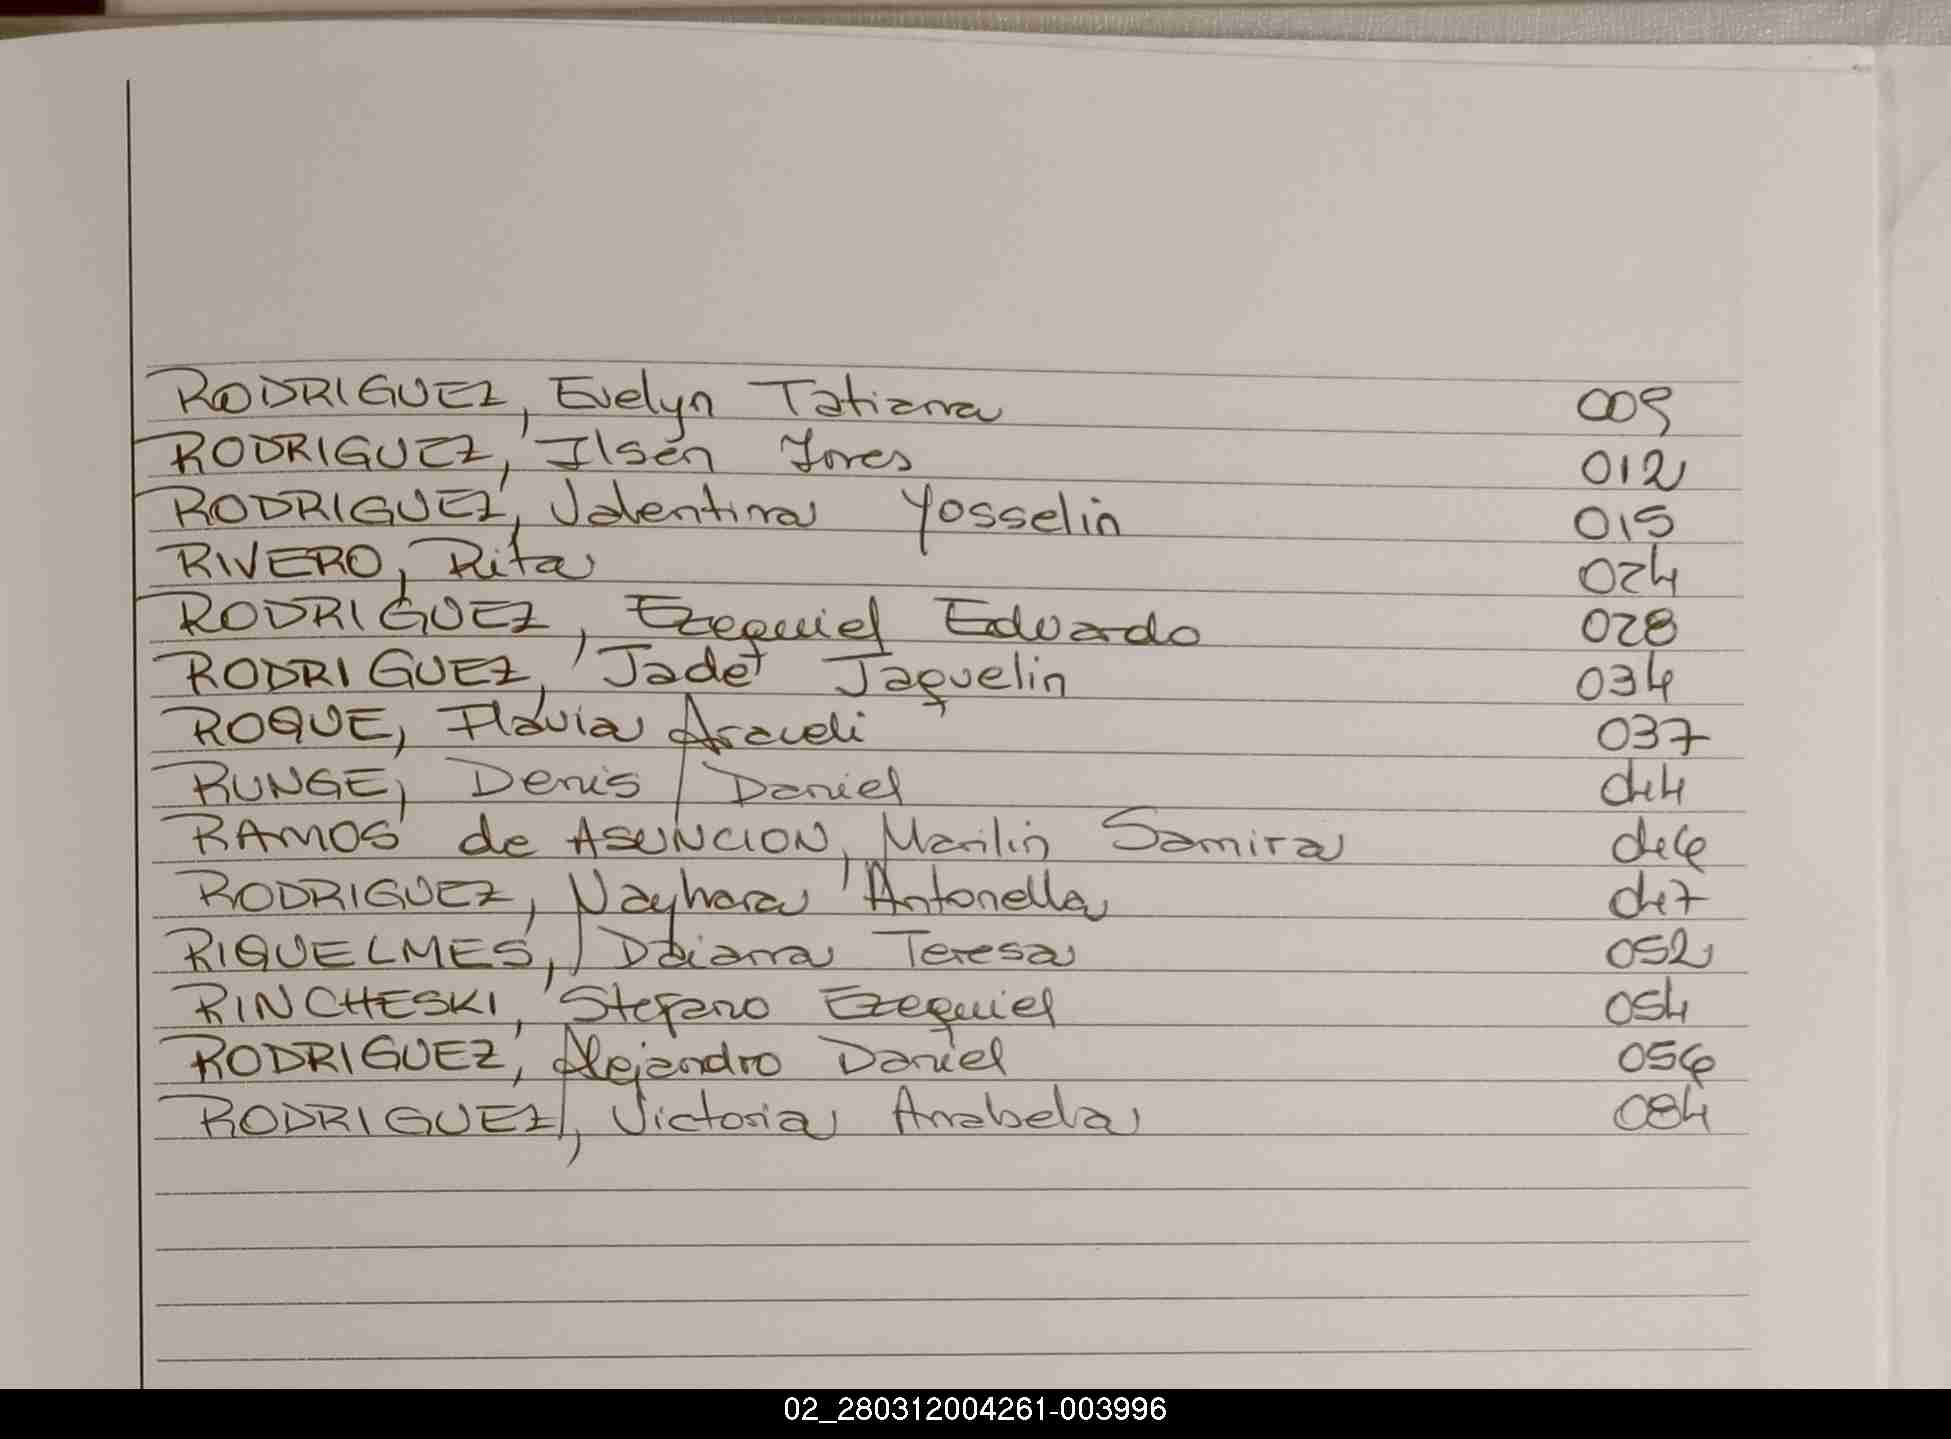 RODRIGUEZ, Evelyn Tatiana 009
RODRIGUEZ, Ilsen Ines 012
RODRIGUEZ, Valentina Yosselin 015
RIVERO, Rita 024
RODRIGUEZ, Ezequiel Eduardo 028
RODRIGUEZ, Jadet Jaquelin 034
ROQUE, Flavia Araceli 037
RUNGE, Denis Daniel 044
RAMOS de ASUNCION, Marilin Samira 046
RODRIGUEZ, Nayhara Antonella 047
RIQUELMES, Daiana Teresa 052
RINCHESKI, Stefano Ezequiel 054
RODRIGUEZ, Alejandro Daniel 056
RODRIGUEZ, Victoria Anabela 084
02_280312004261-003996